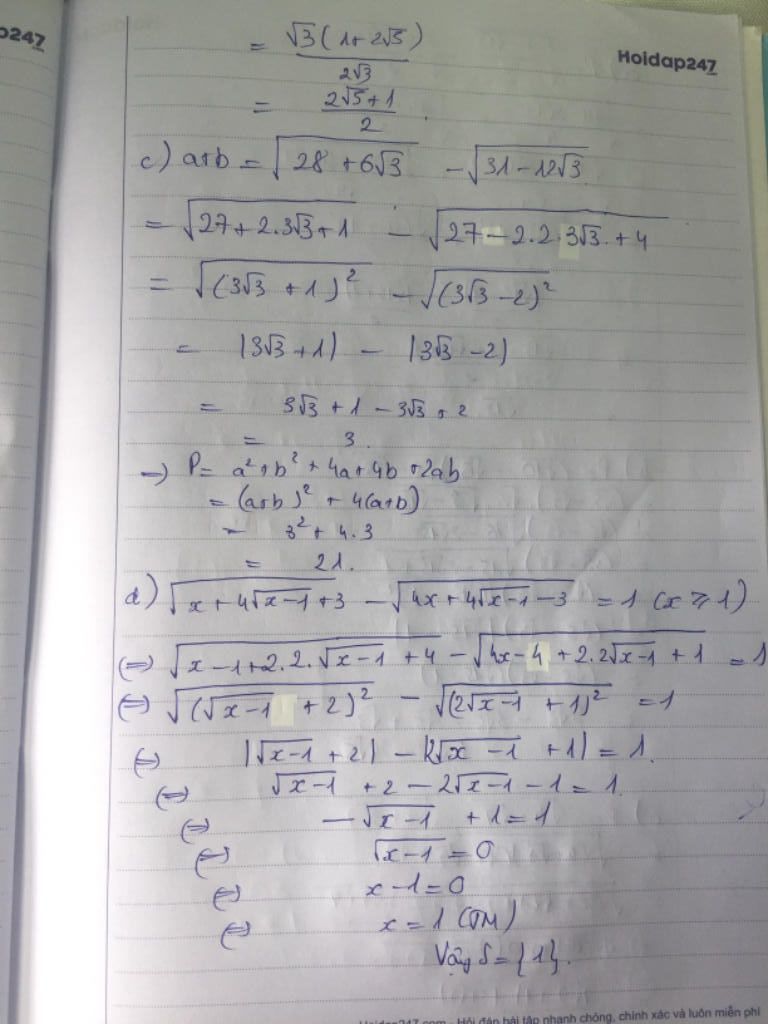 p247
= √3(1+2√5) / 2√3
Hoidap247
= (2√5+1) / 2.
c) a+b = √(28 + 6√3) - √(31-12√3)
= √(27+2.3√3+1) - √(27-2.2.3√3+4)
= √((3√3+1)²) - √((3√3-2)²)
= |3√3+1| - |3√3-2|
= 3√3 + 1 - 3√3 + 2
= 3.
→) P = a²+b²+4a+4b+2ab
= (a+b)² + 4(a+b)
= 3² + 4.3
= 21.
d) √(x+4√(x-1)+3) - √(4x+4√(x-1)-3) = 1 (x ⩾ 1)
(=) √(x-1+2.2.√(x-1)+4) - √(4x-4+2.2√(x-1)+1) = 1
(=) √((√(x-1)+2)²) - √((2√(x-1)+1)²) = 1
(=) |√(x-1)+2| - |2√(x-1)+1| = 1.
(=) √(x-1) + 2 - 2√(x-1) - 1 = 1.
(=) -√(x-1) + 1 = 1
(=) √(x-1) = 0
(=) x-1 = 0
(=) x = 1 (TM)
Vậy S = {1}.
Hoidap247.com - Hỏi đáp bài tập nhanh chóng, chính xác và luôn miễn phí